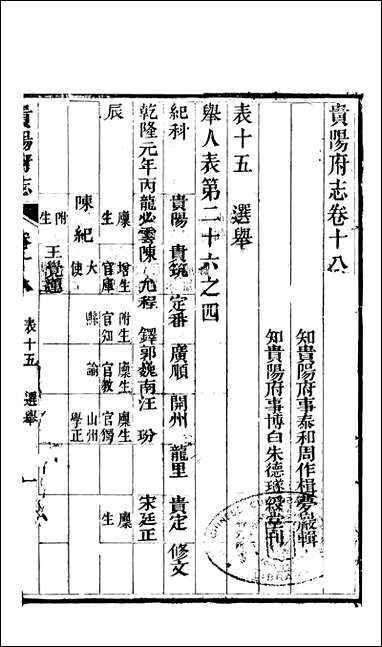 貴陽府志卷十八
知貴陽府事泰和周作楫夢巖輯
知貴陽府事博白朱德璲綬堂刊
表十五 選舉
舉人表第二十六之四
紀科 貴陽 貴筑 定番 廣順 開州 龍里 貴定 修文
乾隆元年丙龍必雲陳允程 鐸郭巍南汪玢 宋廷正
辰 廩生 增生官庫大使 附生官知縣 廩生官教諭 廩生官獨山州學正 廩生
陳紀
附生
王覺蓮
貴陽府志
表十五 選舉 一
CHINESE
LIBRARY